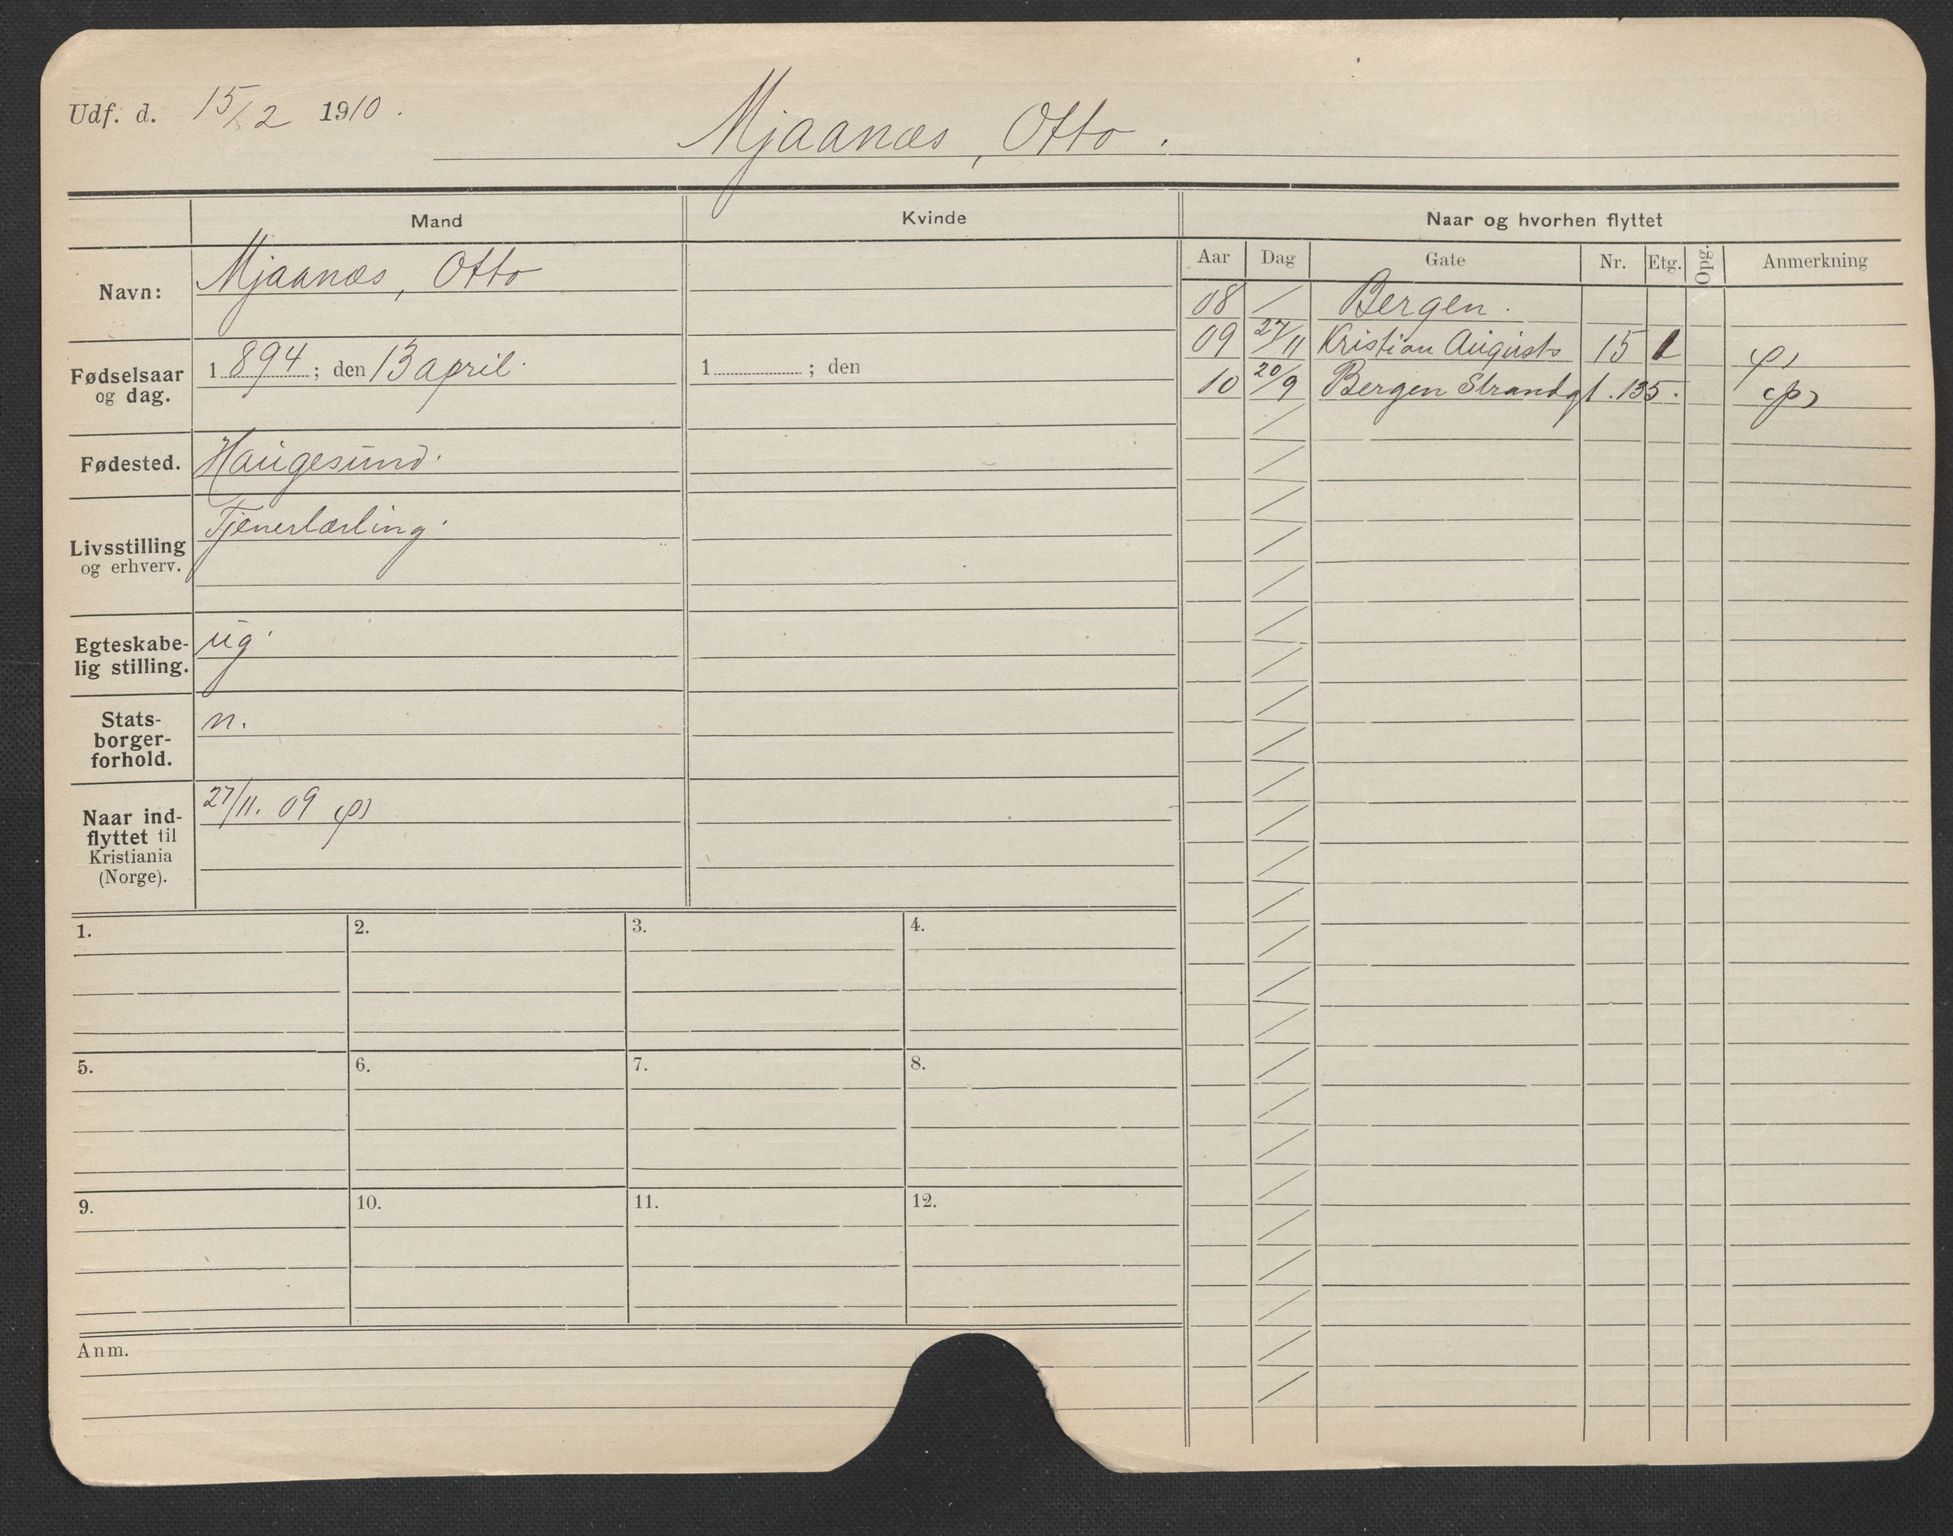 Udf. d. 15/2 1910.
Mjaanæs, Otto.
Mand
Kvinde
Naar og hvorhen flyttet
Aar Dag Gate Nr. Etg. Opg. Anmerkning
Navn: Mjaanæs, Otto
Fødselsaar og dag. 1894; den 13 april. 1 ; den
Fødested. Haugesund.
Livsstilling og erhverv. Tjenerlærling.
Egteskabe-
lig stilling. ug.
Stats-
borger-
forhold. n.
Naar ind-
flyttet til
Kristiania
(Norge). 27/11. 09 (p)
08 / Bergen.
09 27/11 Kristian Augusts 15 1 (p)
10 20/9 Bergen Strandgt. 135. (p)
1. 2. 3. 4.
5. 6. 7. 8.
9. 10. 11. 12.
Anm.